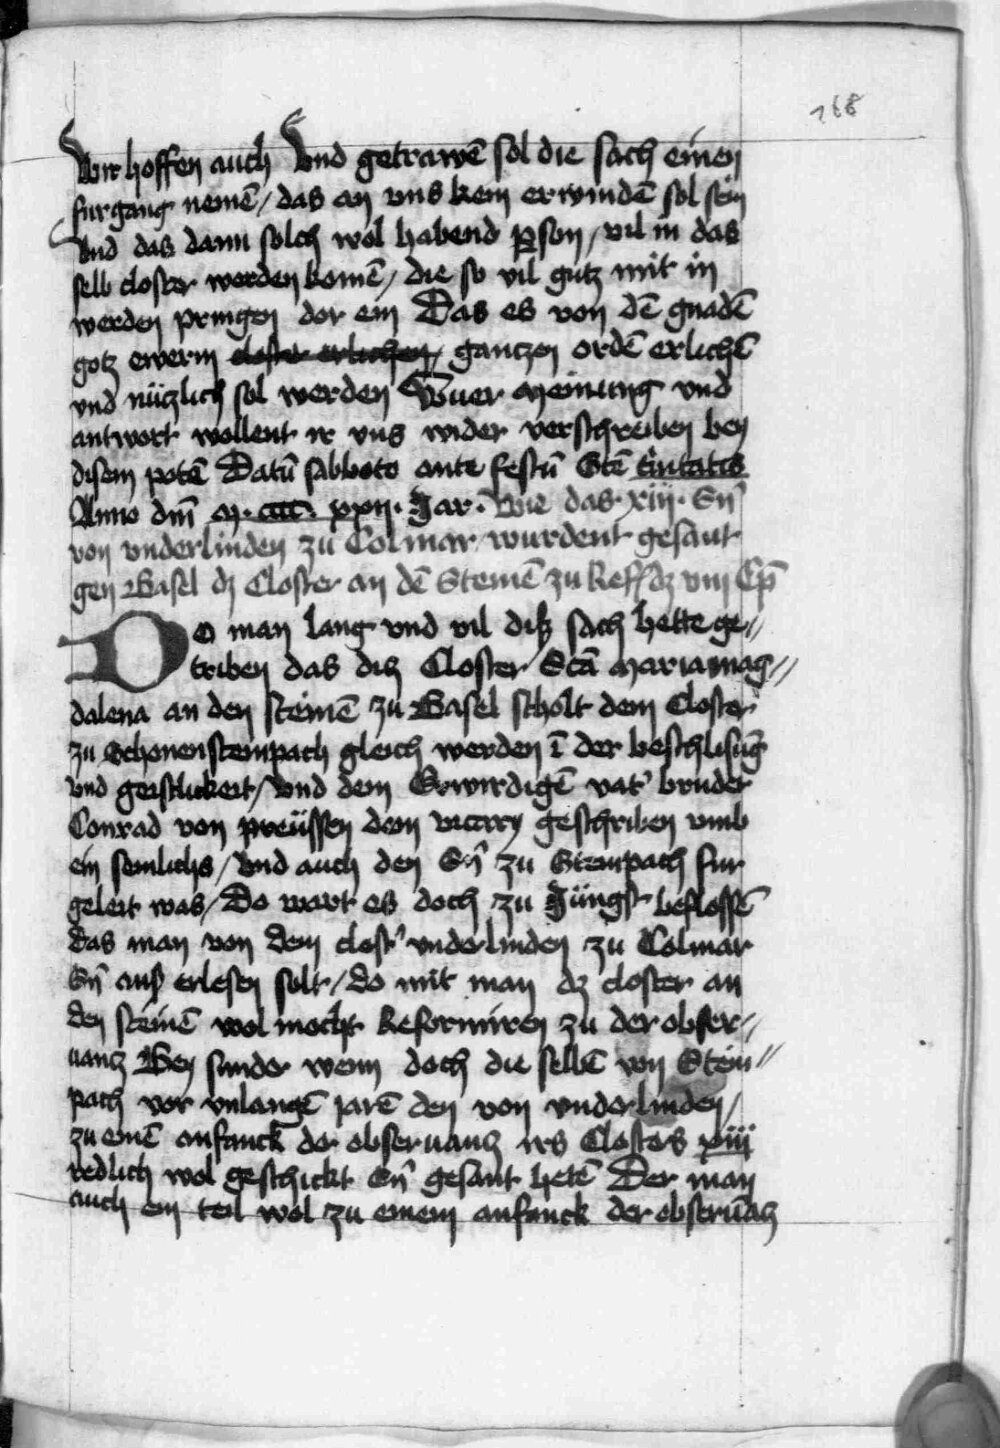 168
Wir hoffen auch Vnd getrawē sol die sach einen
furgang nemē / das an vns kein erwindē sol sein
Vnd das dann solch wol habend ꝑson / vil in das
selb closter werden komē / die so vil gutz mit in
werden pringen dor ein Das es von dē gnadē
gotz ewerm closter erlichen / gantzen ordē erlichē
vnd nützlich sol werden Ewer meinung vnd
antwort wollent ir vns wider verschreiben bey
disem potē Datū sabboto ante festū Scē t̄initatis
Anno dn̄i M. cccc. xxii. Jar. Wie das xiii. Sn̄
von vnderlinden zu Colmar wurdent gesant
gen Basel dz Closter an dē Steinē zu Reff dz viii Cp̄
Do man lang vnd vil diß sach hette ge〃
triben das diß Closter Scā Maria mag〃
dalena an den steinē zu Basel scholt dem Closter
zu Schonensteinpach gleich werden ī der beschlisūg
vnd geistlickeit / Vnd dem Erwirdigē vat' bruder
Conrad von preüssen dem vicary geschriben vmb
ein semlichs / Vnd auch den Sn̄ zu Steinpach fur
geleit was / Do wart es doch zu Jüngst beslossē
das man von dem clost' vnderlinden zu Colmar
Sn̄ auß erlesen solt / do mit man dz closter an
den steinē wol mocht Reformiren zu der obser〃
uantz Bey sunder wenn doch die selbē von Stein〃
pach vor vnlangē jarē den von vnderlinden /
zu einē anfanck der obseruantz irs Closters xiii
redlich wol geschickt Sn̄ gesant hetē Der man
auch ein teil wol zu einem anfanck der obseruātz